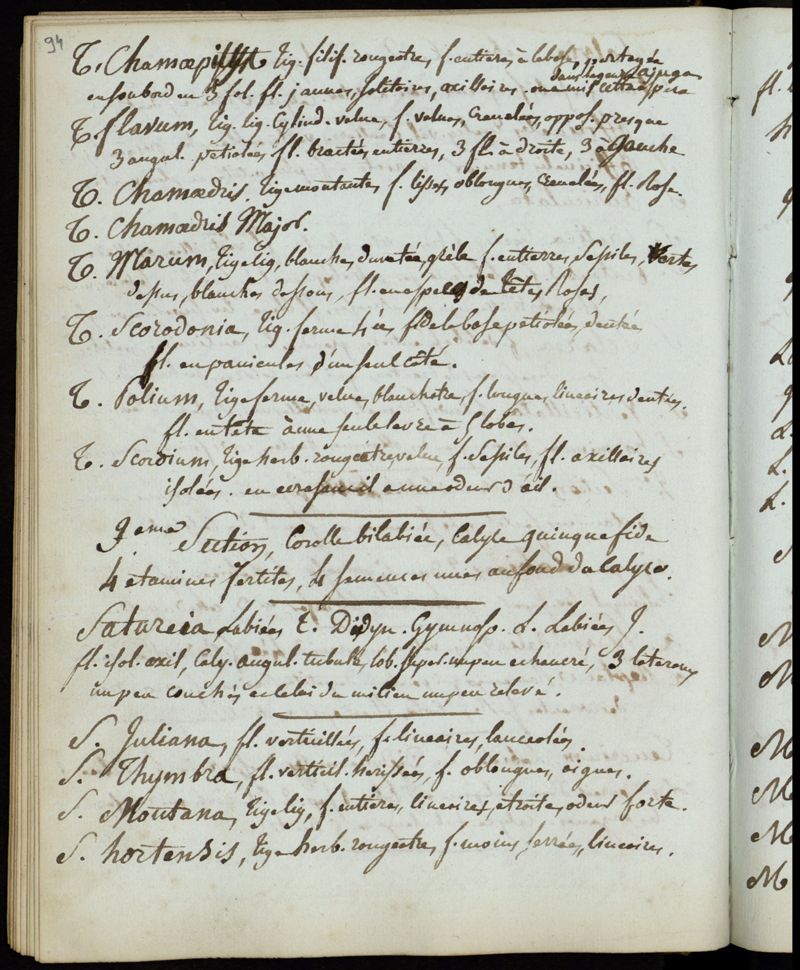 94
T. Chamæpitys tig. filif. rougeatre, f. entieres à la base, partagée
dans le genre ajuga
en son bord en 3 fol. fl. jaunes, solitaires, axillaires.
T. flavum, tig. lig. Cylind. velue, f. velues, Crenelées, oppos. presque
3 angul. petiolées fl. bractées entieres, 3 fl. à droite, 3 à Gauche
T. Chamædris. tige montante, f. lisses oblongues, crenelées, fl. Rose.
T. Chamædris Major.
T. Marum, tige lig, blanche, duvetée, grêle f. entierres, Sessiles, Vertes
dessus, blanches dessous, fl. en espece de têtes Roses,
T. Scorodonia, tig. ferme f. de la base petiolées, dentée
fl. en panicules d'un seul côté.
T. Polium, tige ferme, velue, blanchatre, f. longues, lineaires dentées.
fl. en tête à une seule levre à Globes.
T. Scordium, tige herb. rougeatre velue, f. Sessiles, fl. axillaires
isolées. en ecrasant il a une odeur d'ail.
9eme Section, Corolle bilabiée, Calyce quinquefide
4 etamines fertiles, 4 semences nues au fond du Calyce.
Satureia Labiées T. Didyn. Gymnosp. L. Labiées J.
fl. isol. axil, Caly. angul. tubulé, lob. super. un peu echancré, 3 lateraux
un peu couchés et celui du milieu un peu relevé.
S. Juliana, fl. verticillées, f. lineaires, lanceolées.
S. Thymbra, fl. verticil. herissées, f. oblongues, aigues.
S. Montana, tige lig, f. entieres, lineaires, etroites, odeur forte.
S. hortensis, tige herb. rougeatre, f. moins serrées, lineaires.